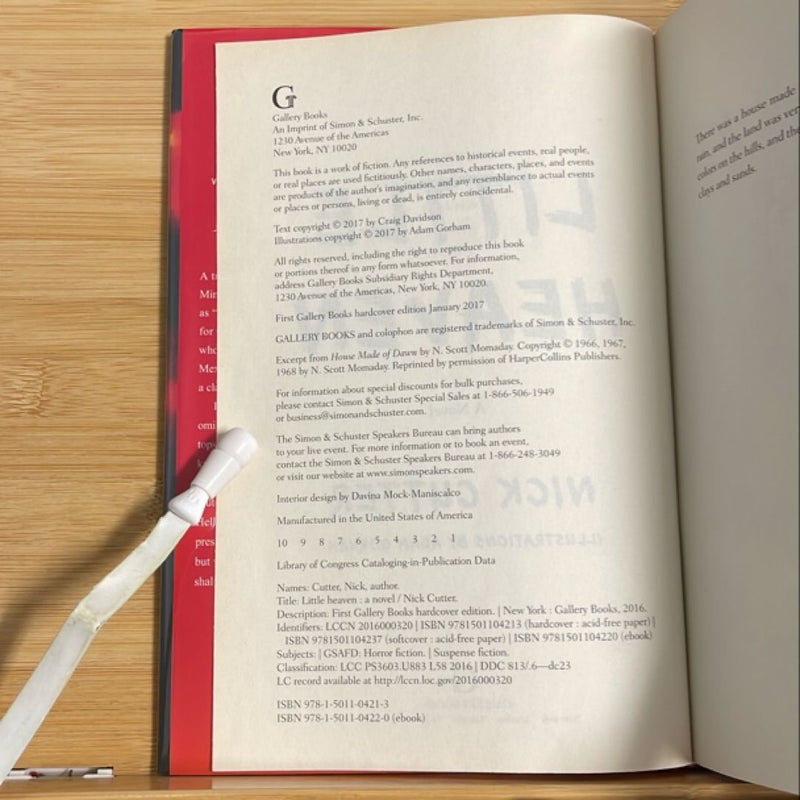 G
Gallery Books
An Imprint of Simon & Schuster, Inc.
1230 Avenue of the Americas
New York, NY 10020
This book is a work of fiction. Any references to historical events, real people,
or real places are used fictitiously. Other names, characters, places, and events
are products of the author's imagination, and any resemblance to actual events
or places or persons, living or dead, is entirely coincidental.
Text copyright © 2017 by Craig Davidson
Illustrations copyright © 2017 by Adam Gorham
All rights reserved, including the right to reproduce this book
or portions thereof in any form whatsoever. For information,
address Gallery Books Subsidiary Rights Department,
1230 Avenue of the Americas, New York, NY 10020.
First Gallery Books hardcover edition January 2017
GALLERY BOOKS and colophon are registered trademarks of Simon & Schuster, Inc.
Excerpt from House Made of Dawn by N. Scott Momaday. Copyright © 1966, 1967,
1968 by N. Scott Momaday. Reprinted by permission of HarperCollins Publishers.
For information about special discounts for bulk purchases,
please contact Simon & Schuster Special Sales at 1-866-506-1949
or business@simonandschuster.com.
The Simon & Schuster Speakers Bureau can bring authors
to your live event. For more information or to book an event,
contact the Simon & Schuster Speakers Bureau at 1-866-248-3049
or visit our website at www.simonspeakers.com.
Interior design by Davina Mock-Maniscalco
Manufactured in the United States of America
10 9 8 7 6 5 4 3 2 1
Library of Congress Cataloging-in-Publication Data
Names: Cutter, Nick, author.
Title: Little heaven : a novel / Nick Cutter.
Description: First Gallery Books hardcover edition. | New York : Gallery Books, 2016.
Identifiers: LCCN 2016000320 | ISBN 9781501104213 (hardcover : acid-free paper) |
ISBN 9781501104237 (softcover : acid-free paper) | ISBN 9781501104220 (ebook)
Subjects: | GSAFD: Horror fiction. | Suspense fiction.
Classification: LCC PS3603.U883 L58 2016 | DDC 813/.6—dc23
LC record available at http://lccn.loc.gov/2016000320
ISBN 978-1-5011-0421-3
ISBN 978-1-5011-0422-0 (ebook)
There was a house made
rain, and the land was ver
colors on the hills, and the
clays and sands.